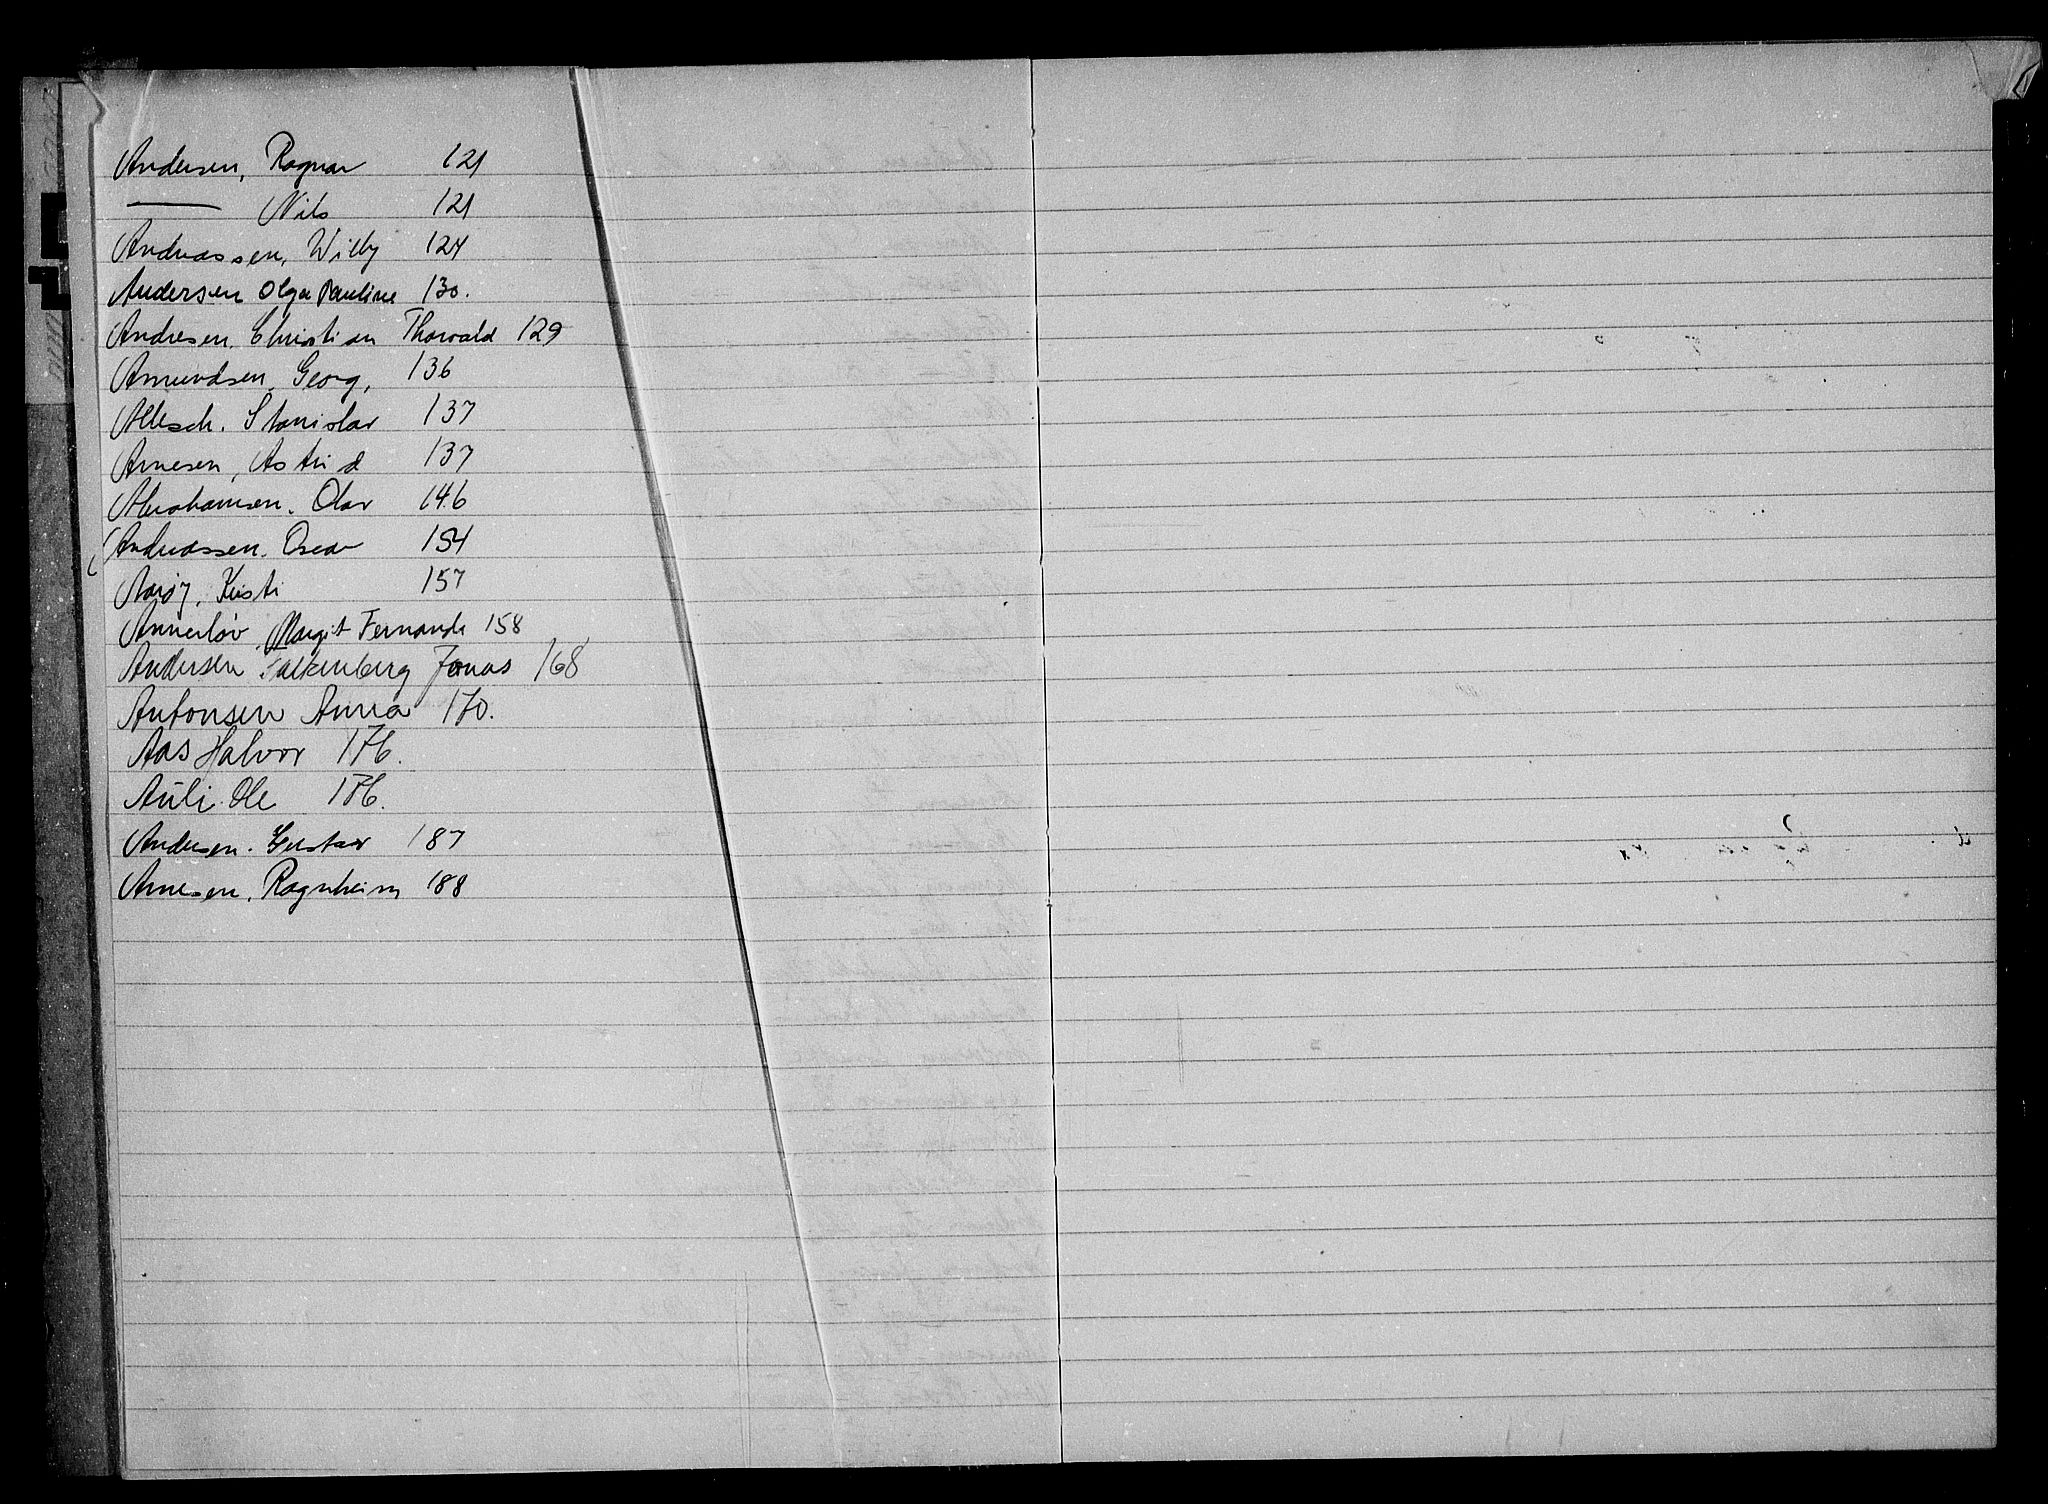 Andersen, Ragnar 121
—— Nils 121
Andreassen, Willy 124
Andersen Olga Pauline 130.
Andresen Christian Thorvald 129
Amundsen, Georg, 136
Allesch. Stanislav 137
Arnesen, Astrid 137
Abrahamsen. Olav 146
Andreassen. Oscar 154
Aarøy, Kirsti 157
Annerløv, Margit Fernanda 158
Andersen Falkenberg Jonas 168
Antonsen Anna 170.
Aas Halvor 176.
Auli Ole 176.
Andersen. Gustav 187
Arnesen, Ragnheim 188